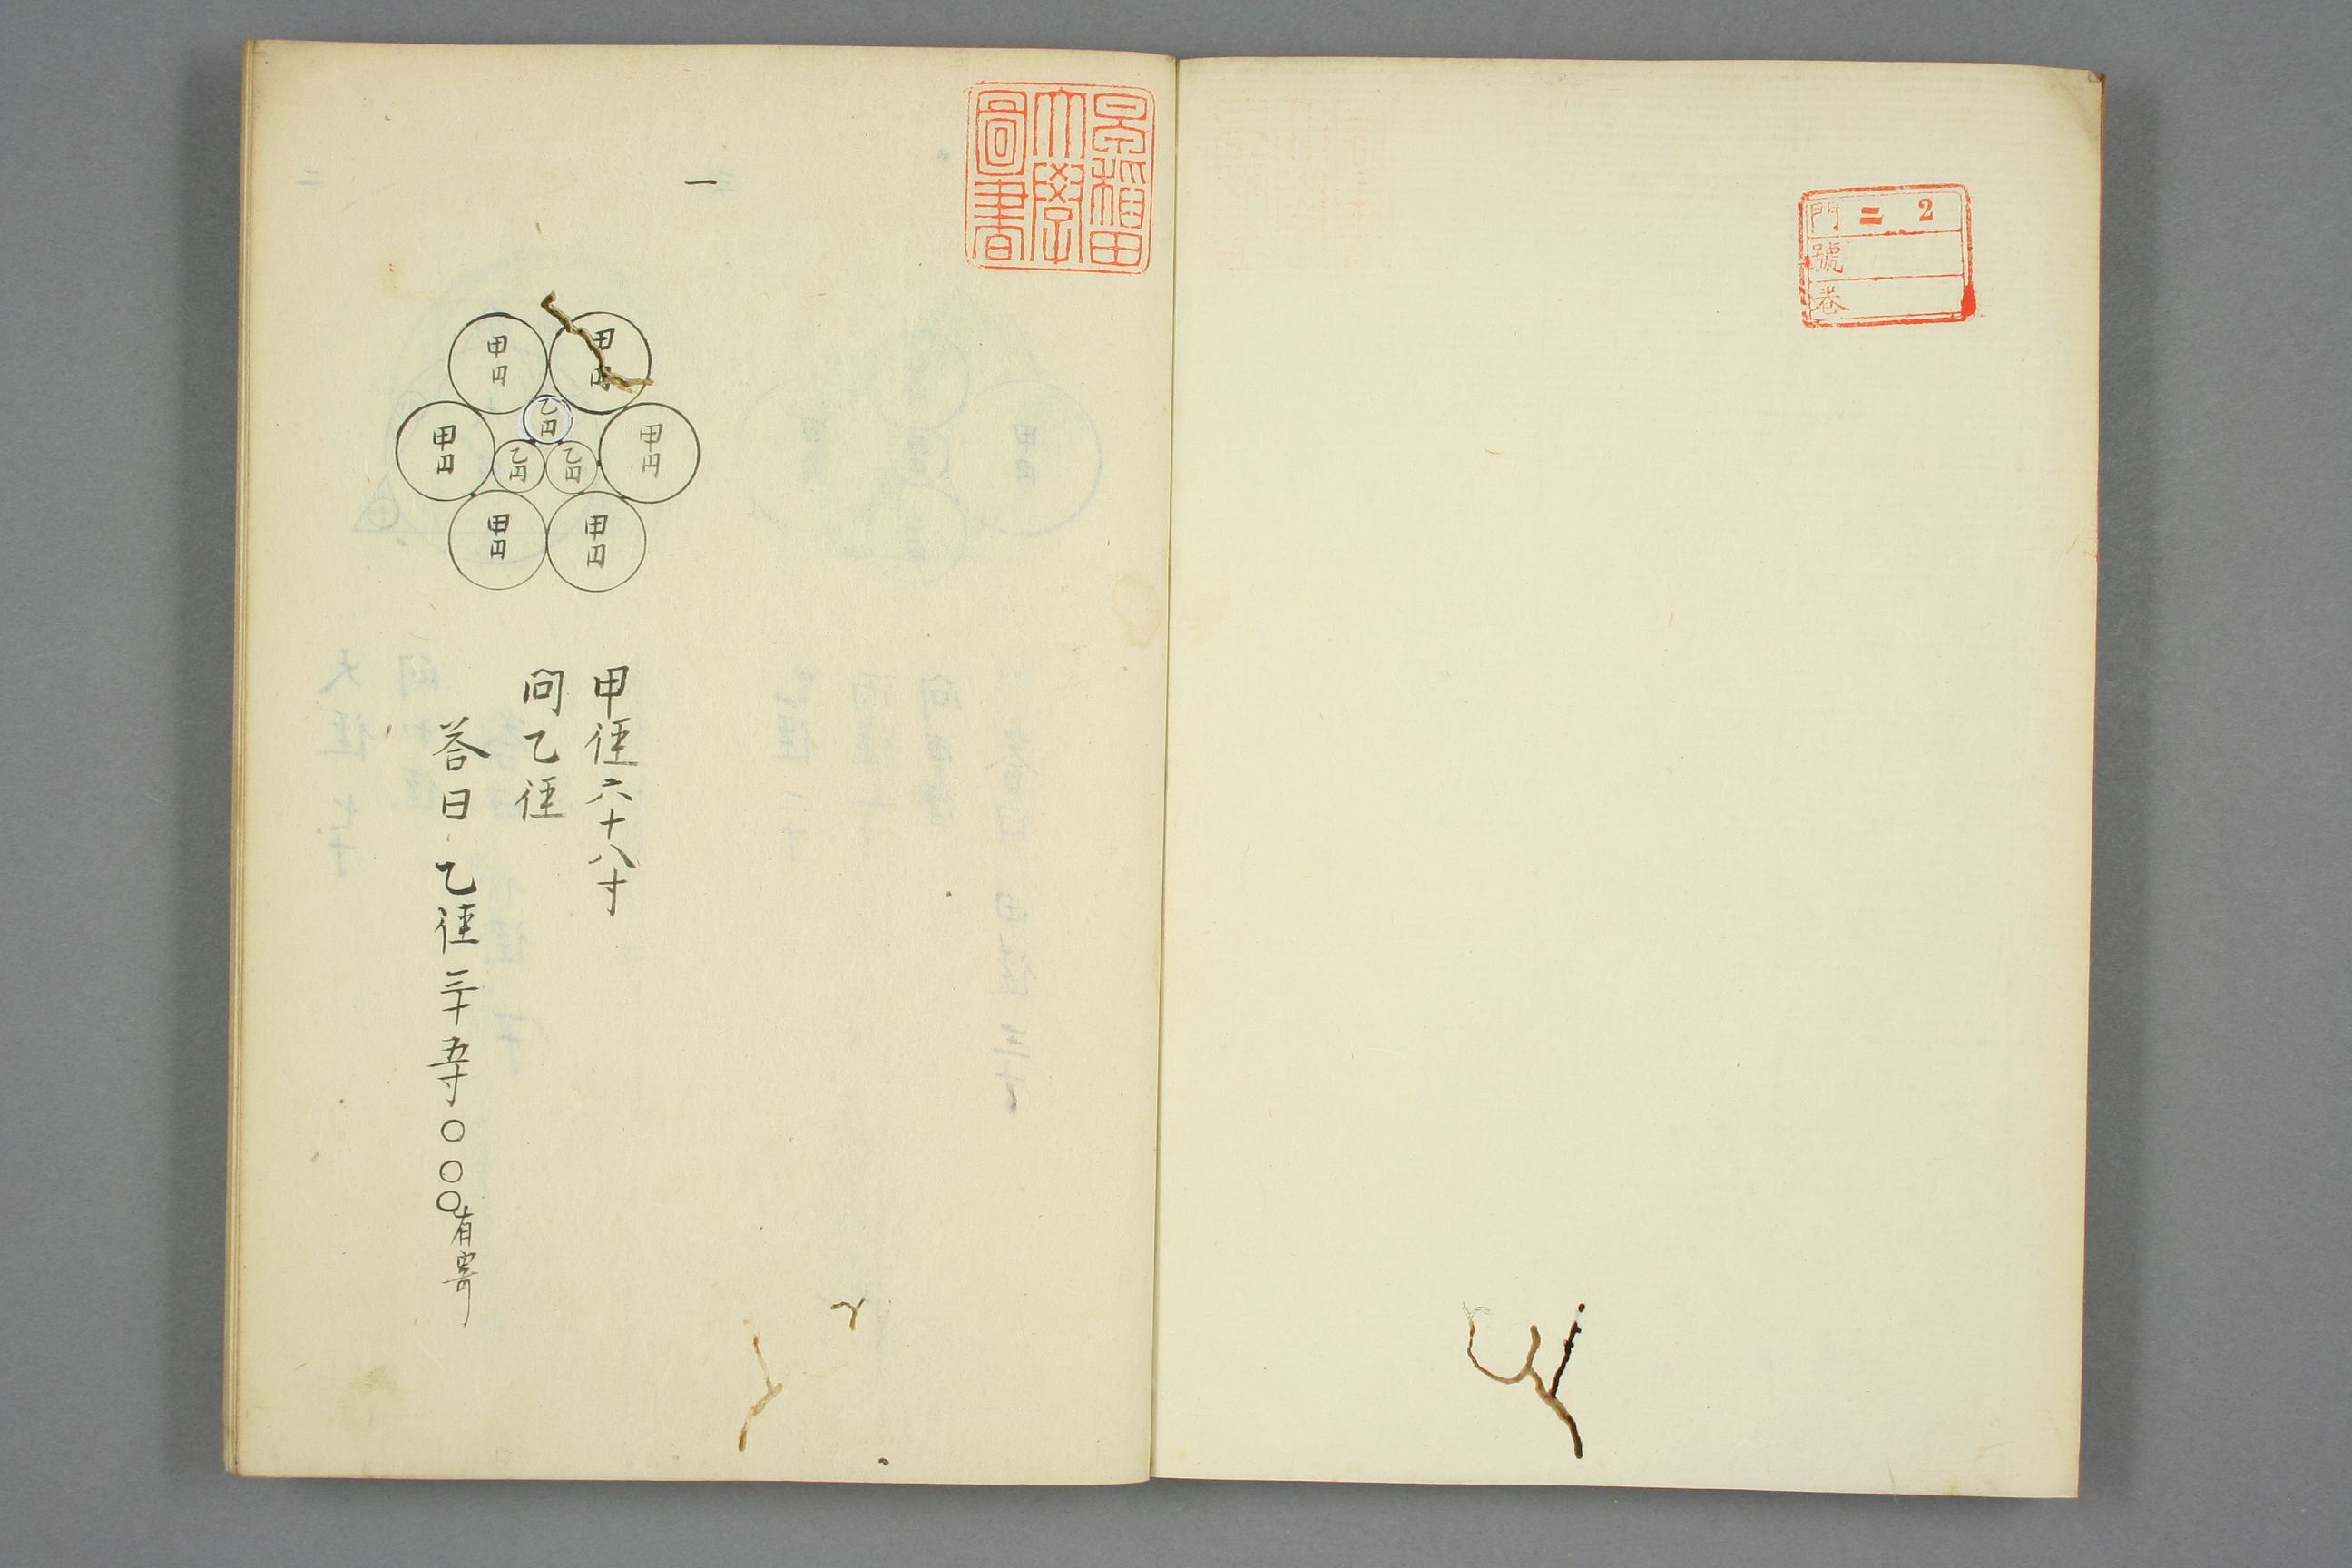 門 二 2
號
巻
早稲田
大學
圖書
一
甲円
甲円
乙円
甲円
甲円
乙円
乙円
甲円
甲円
甲径六十八寸
問乙径
答曰乙径三十五寸〇〇〇有寄